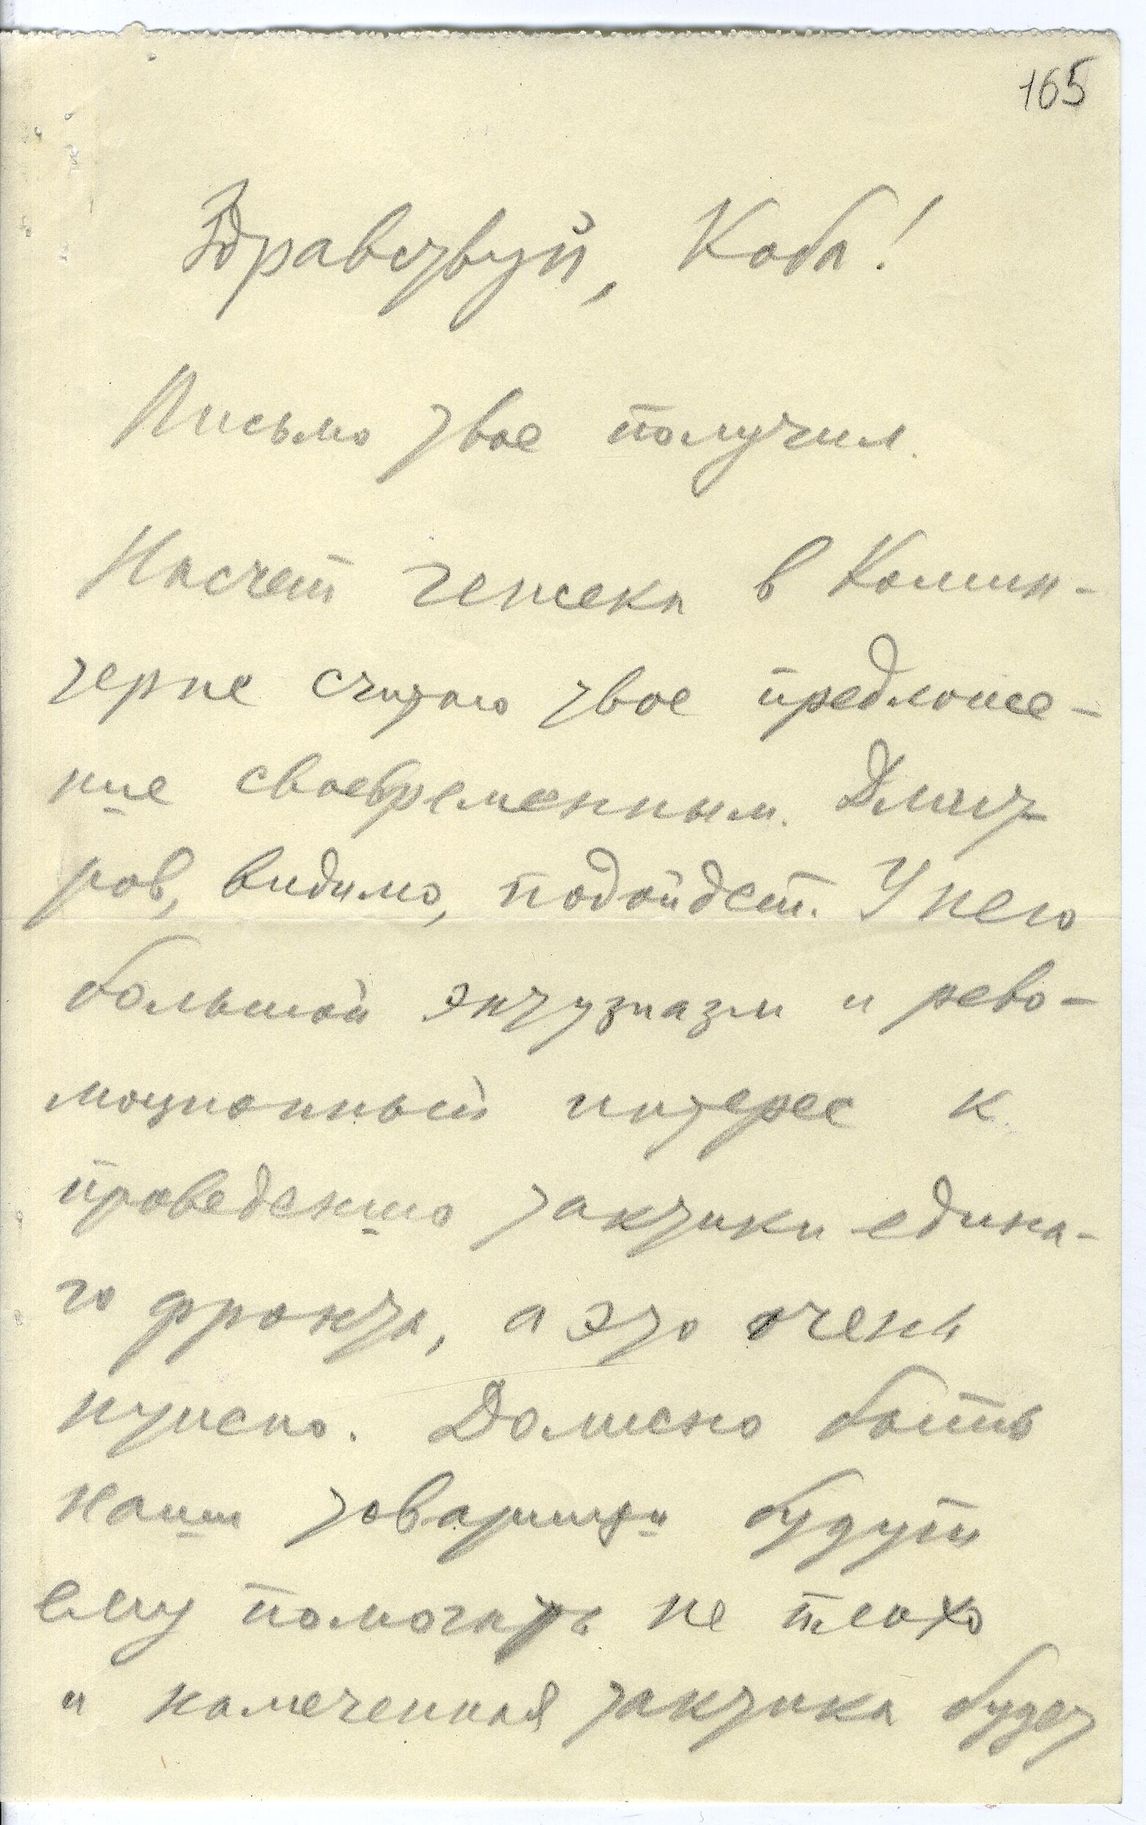 165
Здравствуй, Коба!
Письмо твое получил.
Насчет генсека в Комин-
терне считаю твое предложе-
ние своевременным. Дмит-
ров, видимо, подойдет. У него
большой энтузиазм и рево-
люционный интерес к
проведению тактики едина-
го фронта, а это очень
нужно. Должно быть
наши товарищи будут
ему помогать не плохо
и намеченная тактика будет